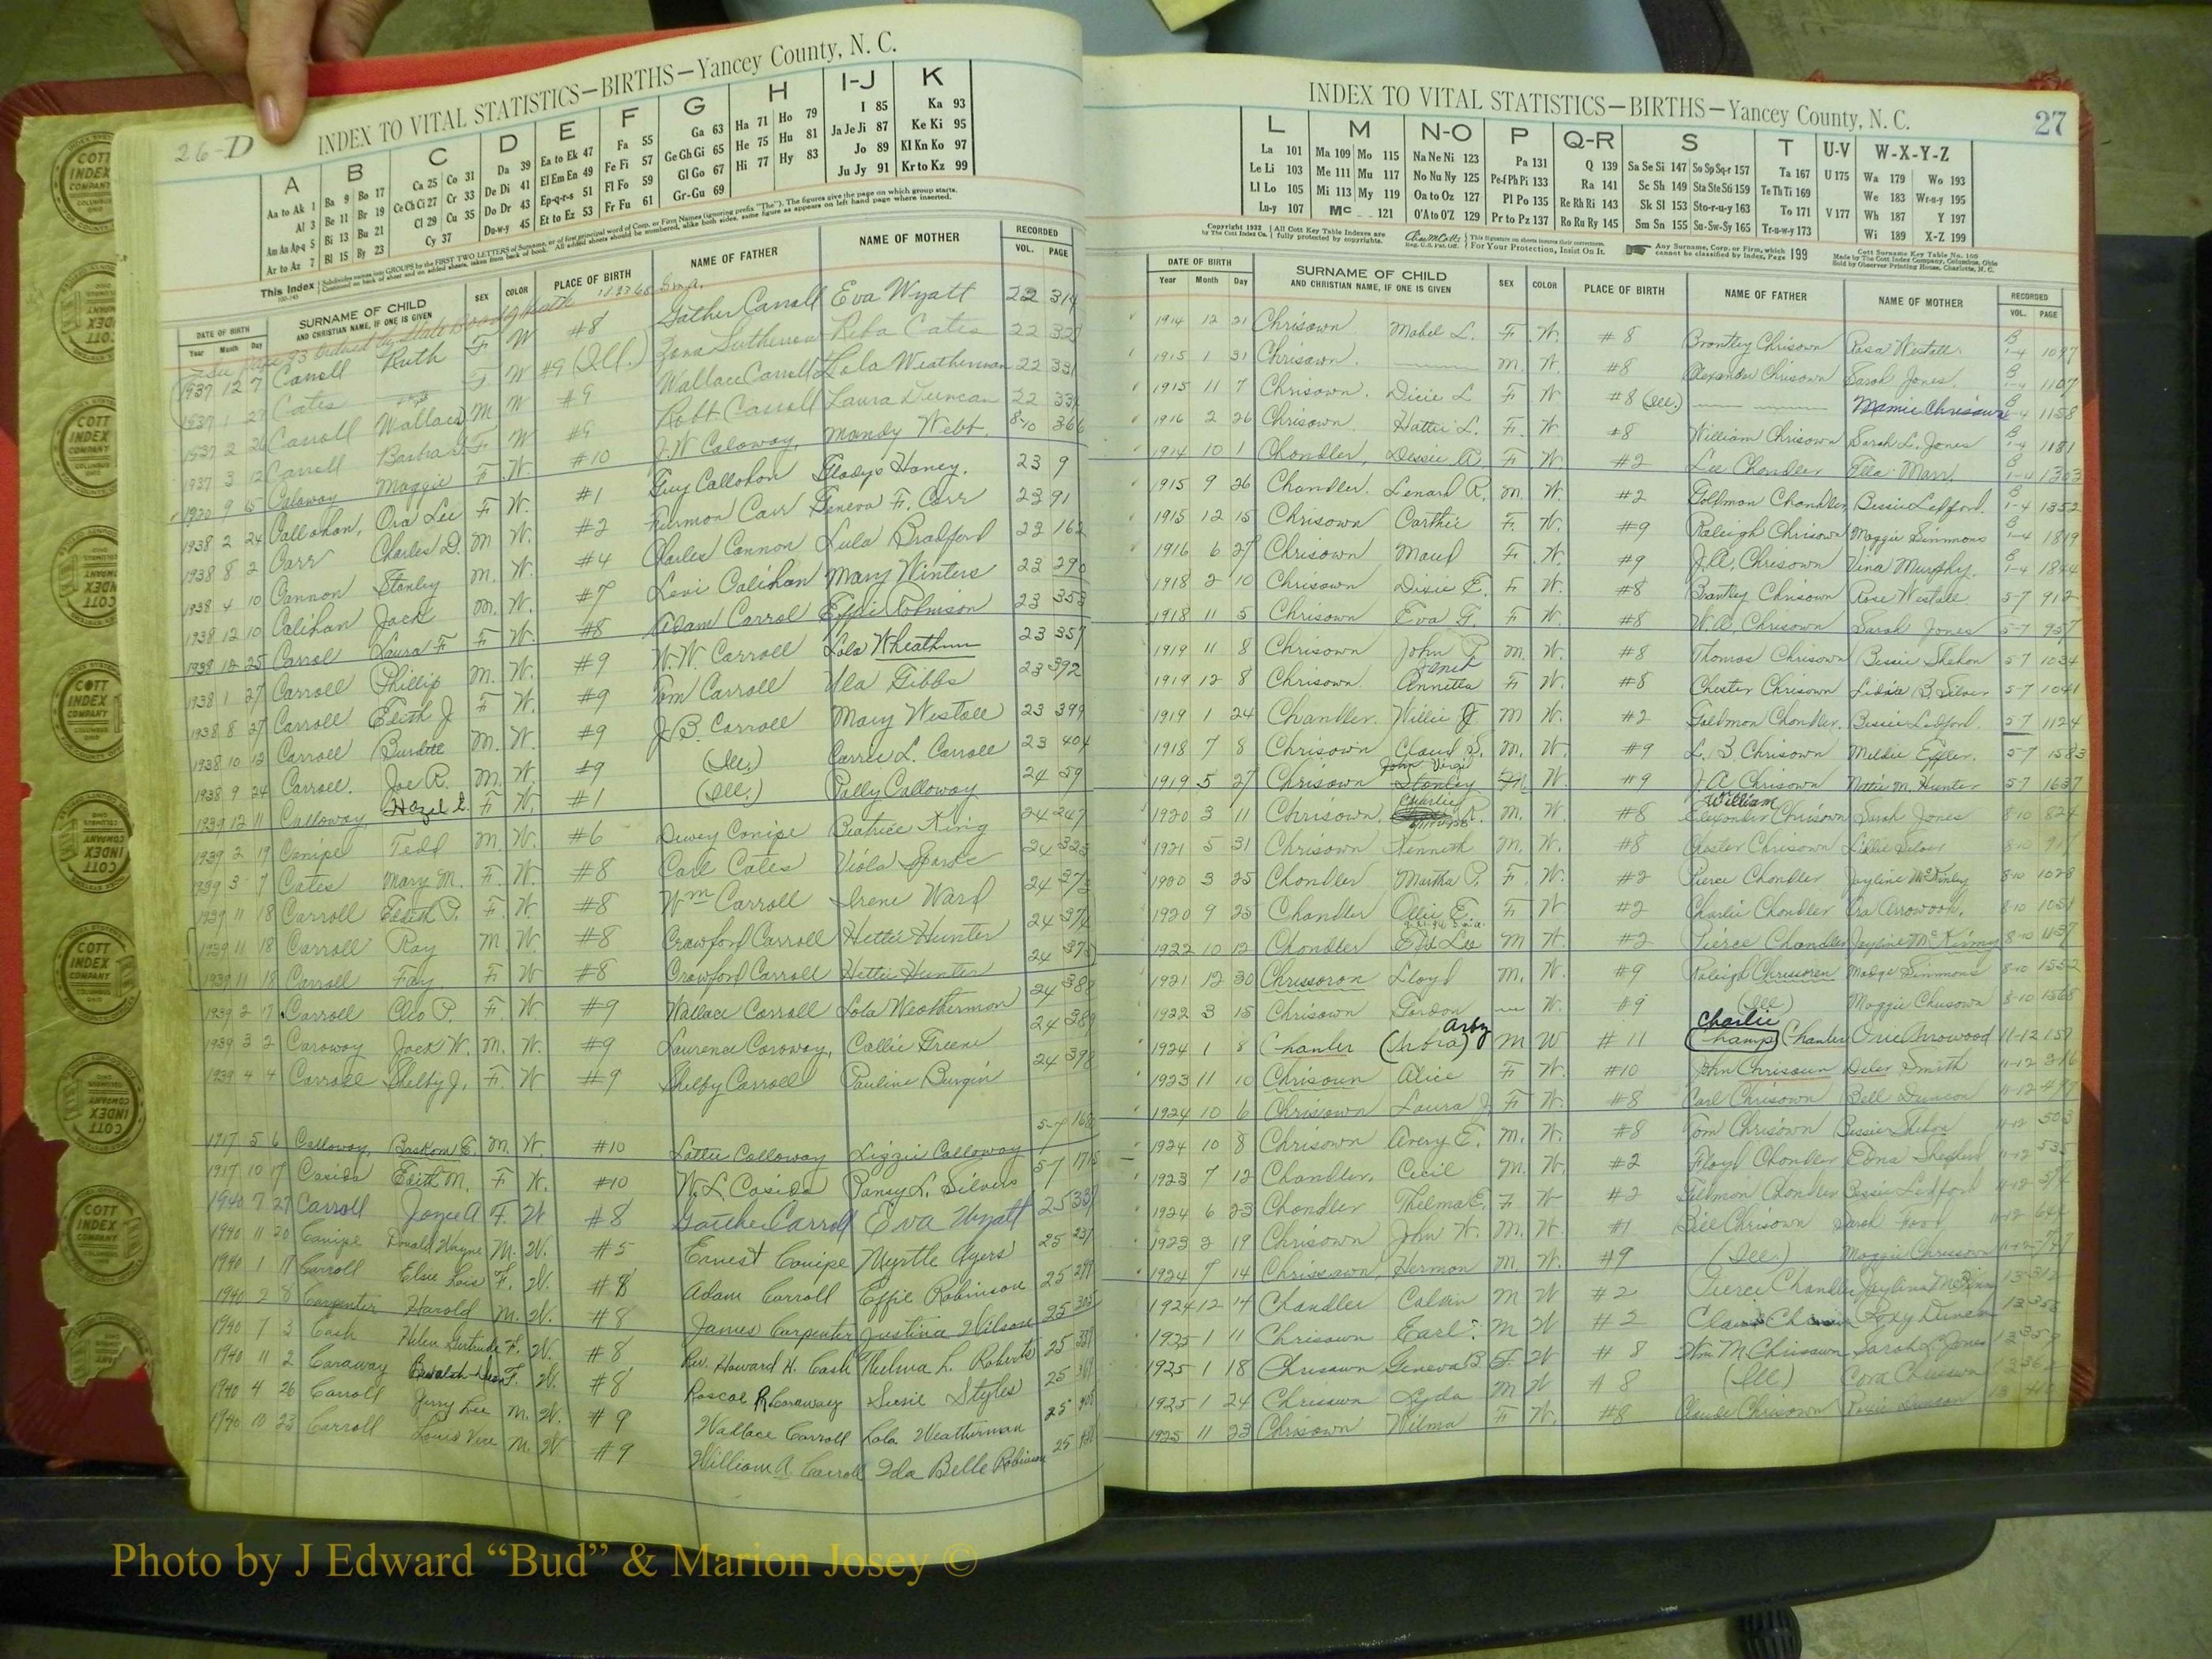 26-D
INDEX TO VITAL STATISTICS—BIRTHS—Yancey County, N. C.
A B C D E F G H I-J K
Aa to Ak 1 Ba 9 Bo 17 Ca 25 Co 31 Da 39 Ea to Ek 47 Fa 55 Ga 63 Ha 71 Ho 79 I 85 Ka 93
Al 3 Be 11 Br 19 Ce Ch Ci 27 Cr 33 De Di 41 El Em En 49 Fe Fi 57 Ge Gh Gi 65 He 75 Hu 81 Ja Je Ji 87 Ke Ki 95
Am An Ap-q 5 Bi 13 Bu 21 Cl 29 Cu 35 Do Dr 43 Ep-q-r-s 51 Fl Fo 59 Gl Go 67 Hi 77 Hy 83 Jo 89 Kl Kn Ko 97
Ar to Az 7 Bl 15 By 23 Cy 37 Du-w-y 45 Et to Ez 53 Fr Fu 61 Gr-Gu 69 Ju Jy 91 Kr to Kz 99
This Index
DATE OF BIRTH SURNAME OF CHILD SEX COLOR PLACE OF BIRTH NAME OF FATHER NAME OF MOTHER RECORDED
Year Month Day AND CHRISTIAN NAME, IF ONE IS GIVEN VOL. PAGE
1937 12 7 Carroll Ruth F W #8 Gather Carroll Eva Wyatt 22 314
1937 1 27 Cates F W #9 (Ill.) Reba Cates 22
1937 2 26 Carroll Wallace M W #9 Wallace Carroll Lola Weatherman 22 331
1937 3 12 Carroll Barbara F W #9 Robt Carroll Laura Duncan 22
1920 9 15 Caloway Maggie F. W. #10 J.W. Caloway, Mandy Webb. 8-10 366
1938 2 24 Callahan, Ora Lee F W. #1 Guy Callohon Gladys Haney. 23 9
1938 8 2 Carr Charles D. M W. #2 Furmon Carr Geneva F. Carr 23 91
1938 4 10 Cannon Stanley M. W. #4 Charles Cannon Lula Bradford 23 162
1938 12 10 Calihan Jack M. W. #7 Levi Calihan Mary Winters 23 290
1938 12 25 Carrol Laura F F W. #8 Adam Carrol Effie Robinson 23 353
1938 1 27 Carroll Phillip M. W. #9 W.W. Carroll Lola Wheathmn 23 357
1938 8 27 Carroll Edith J F W. #9 Tom Carroll Ula Gibbs 23 392
1938 10 12 Carroll Burdette M. W. #9 J.B. Carroll Mary Westall 23 399
1938 9 24 Carroll. Joe R. M. W. #9 (Ill.) Carrie L. Carroll 23 404
1939 12 11 Calloway Hazel L. F W. #1 (Ill.) Polly Calloway 24 59
1939 2 19 Canipe Tedd M W. #6 Dewey Canipe Beatrice King 24 247
1939 3 7 Cates Mary M. F. W. #8 Carl Cates Viola Sparks 24 323
1939 11 18 Carroll Edith P. F. W. #8 Wm Carroll Irene Ward 24 373
1939 11 18 Carroll Ray M. W. #8 Crawford Carroll Hettie Hunter 24 374
1939 11 18 Carroll Fay F. W #8 Crawford Carroll Hettie Hunter 24 375
1939 2 17 Carroll Cleo P. F. W. #9 Wallace Carroll Lola Weathermon 24 388
1939 3 2 Caroway Jack W. M. W. #9 Laurence Caroway, Callie Greene 24 389
1939 4 4 Carroll Shelby J. F. W #9 Shelby Carroll Pauline Burgin 24 398
1917 5 6 Calloway, Baskom E. M. W #10 Lottie Calloway Lizzie Calloway 5-7
1917 10 17 Casida Edith M. F W. #10 W.L. Casida Pansy L. Silvers 5-7
1940 7 27 Carroll Joyce A F. W #8 Gaither Carroll Eva Wyatt 25
1940 11 20 Canipe Donald Wayne M. W. #5 Ernest Canipe Myrtle Ayers 25 237
1940 1 17 Carroll Elsie Lois F. W. #8 Adam Carroll Effie Robinson 25 299
1940 2 8 Carpenter Harold M. W. #8 James Carpenter Justina Wilson 25 305
1940 7 3 Cash Helen Gertrude F. W. #8 Rev. Howard H. Cash Thelma L. Roberts 25
1940 11 2 Caraway F. W. #8 Roscoe R. Caraway Susie Styles 25
1940 4 26 Carroll Jerry Lee M. W. #9 Wallace Carroll Lola Weatherman 25
1940 10 23 Carroll Louis Vere M. W #9 William A. Carroll Ida Belle Robinson 25
INDEX TO VITAL STATISTICS—BIRTHS—Yancey County, N. C. 27
L M N-O P Q-R S T U-V W-X-Y-Z
La 101 Ma 109 Mo 115 Na Ne Ni 123 Pa 131 Q 139 Sa Se Si 147 So Sp Sq-r 157 Ta 167 U 175 Wa 179 Wo 193
Le Li 103 Me 111 Mu 117 No Nu Ny 125 Pe-f Ph Pi 133 Ra 141 Sc Sh 149 Sta Ste Sti 159 Te Th Ti 169 We 183 Wr-u-y 195
Ll Lo 105 Mi 113 My 119 Oa to Oz 127 Pl Po 135 Re Rh Ri 143 Sk Sl 153 Sto-r-u-y 163 To 171 V 177 Wh 187 Y 197
Lu-y 107 Mc 121 O'A to O'Z 129 Pr to Pz 137 Ro Ru Ry 145 Sm Sn 155 Su-Sw-Sy 165 Tr-u-w-y 173 Wi 189 X-Z 199
Copyright 1932 by The Cott Index Co. All Cott Key Table Indexes are fully protected by copyrights. For Your Protection, Insist On It. Any Surname, Corp. or Firm, which cannot be classified by Index, Page 199
DATE OF BIRTH SURNAME OF CHILD SEX COLOR PLACE OF BIRTH NAME OF FATHER NAME OF MOTHER RECORDED
Year Month Day AND CHRISTIAN NAME, IF ONE IS GIVEN VOL. PAGE
1914 12 21 Chrisawn Mabel L. F W. #8 Brantley Chrisawn Rosa Westall B 1-4 1097
1915 1 31 Chrisawn. M. W. #8 Alexander Chrisawn Sarah Jones. B 1-4 1107
1915 11 7 Chrisawn. Dicie L F W #8 (Ill.) Mamie Chrisawn B 1-4 1158
1916 2 26 Chrisawn Hattie L. F. W. #8 William Chrisawn Sarah L. Jones B 1-4 1181
1914 10 1 Chandler, Dessie A F W. #2 Lee Chandler Ella Marr. B 1-4 1303
1915 9 26 Chandler. Lenard R. M. W. #2 Tollmon Chandler Bessie Ledford. B 1-4 1352
1915 12 15 Chrisown Carthie F. W. #9 Raleigh Chrisown Maggie Simmons B 1-4 1819
1916 6 27 Chrisown Maud F W. #9 J.A. Chrisown Vina Murphy. B 1-4 1844
1918 2 10 Chrisawn Dixie E. F W. #8 Brantley Chrisown Rose Westall 5-7 912
1918 11 5 Chrisown Eva G. F W. #8 W.A. Chrisown Sarah Jones 5-7 957
1919 11 8 Chrisown John P. M. W. #8 Thomas Chrisown Bessie Shehan 5-7 1034
1919 12 8 Chrisown Janet Annitta F W. #8 Chester Chrisown Liddia B. Silver 5-7 1041
1919 1 24 Chandler. Willie J. M W. #2 Tollmon Chandler. Bessie Ledford 5-7 1124
1918 7 8 Chrisown Claud S. M. W. #9 L. B Chrisown Meldie Edler. 5-7 1583
1919 5 27 Chrisown Stanley M W. #9 J.A. Chrisown Nattie M. Hunter 5-7 1637
1920 3 11 Chrisown, Charlie R. M. W. #8 William Alexander Chrisown Sarah Jones 8-10 824
1921 5 31 Chrisown Kenneth M. W. #8 Chester Chrisown Liddie Silver 8-10
1920 3 25 Chandler Martha P. F. W. #2 Pierce Chandler Jayline McKinley 8-10 1028
1920 9 25 Chandler Ollie E. F W #2 Charlie Chandler Ora Arrowood. 8-10 1051
1922 10 12 Chandler Ed Lee M W. #2 Pierce Chandler Jayline McKinny 8-10 1137
1921 12 30 Chrissoron Lloyd M. W. #9 Raleigh Chrissoren Madge Simmons 8-10 1552
1922 3 15 Chrisown Gordon — W. #9 (Ill) Maggie Chrisown 8-10 1568
1924 1 8 Chanler (Arbra) Arby M W #11 Charlie (Champ) Chanler Orie Arrowood 11-12 159
1923 11 10 Chrisoun Alice F W. #10 John Chrisoun Deler Smith 11-12 316
1924 10 6 Chrisown Laura J. F W. #8 Carl Chrisown Bell Duncan 11-12
1924 10 8 Chrisown Avery E. M. W. #8 Tom Chrisown Bessie Shehan 11-12 503
1923 7 12 Chandler, Cecil M. W. #2 Floyd Chandler Edna Shepherd 11-12 535
1924 6 23 Chandler Thelma E. F W #2 Tillmon Chandler Bessie Ledford 11-12
1923 2 19 Chrisown John W. M. W. #1 Bill Chrisown Sarah 11-12
1924 7 14 Chrisawn, Hermon M. W. #9 (Ill.) Maggie Chrisown 11-12
1924 12 14 Chandler Calvin M W #2 Pierce Chandler 13
1925 1 11 Chrisawn Earl M W #2 Roxy Duncan 13
1925 1 18 Chrisawn Geneva B. F W #8 Wm M Chrisawn Sarah L. Jones 13
1925 1 24 Chrisawn Lyda M W #8 (Ill) Cora Chrisawn 13
1925 11 23 Chrisown Wilma F W. #8 Claude Chrisown Roxie Duncan 13
COTT INDEX COMPANY
Photo by J Edward “Bud” & Marion Josey ©